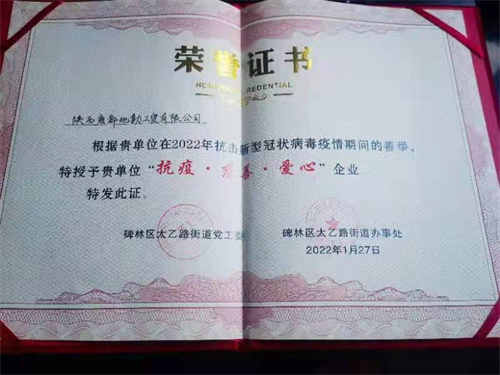 荣誉证书
HONOR CREDENTIAL
根据贵单位在2022年抗击新型冠状病毒疫情期间的善举,
特授予贵单位“抗疫·慈善·爱心”企业
特发此证。
碑林区太乙路街道党工委 碑林区太乙路街道办事处
2022年1月27日